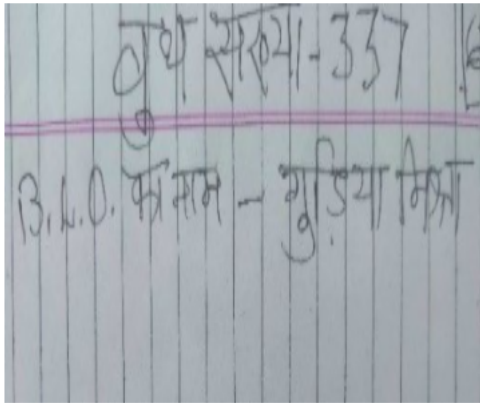 बुथ संख्या - 337
B.L.O. का नाम - गुड़िया मिश्रा